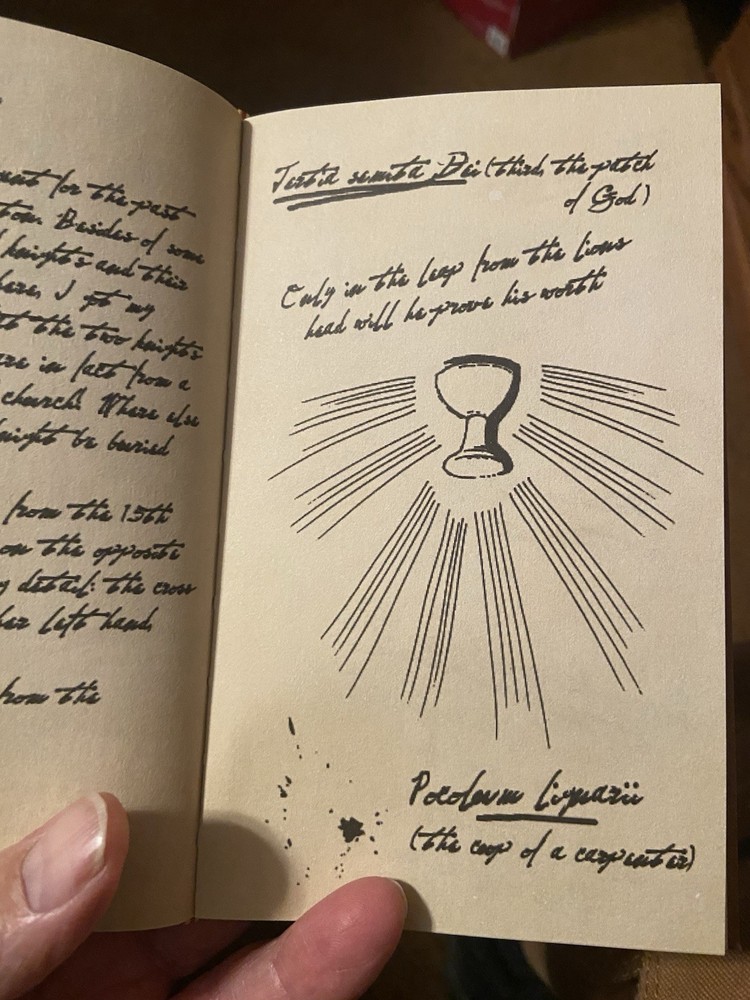 ent for the past
tom. Besides of some
knights and their
here, I pt my
t the two knights
are in fact from a
church. Where else
might be buried
from the 15th
on the opposite
detail: the cross
her left hand,
from the
Tertia semita Dei (third, the patch
of God)
Only in the leap from the lions
head will he prove his worth
Pocolum lignarii
(the coop of a carpenter)